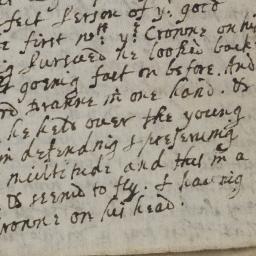 fect Person of yͤ good
first noᵗᵗ yͤ Cronne on his
Pursued he looked back
goeing fast on before. And
drawne in one hand. &
he held over the young
in defending & preserving
multitude and this in a
& seemd to fly. & having
Cronne on his head.